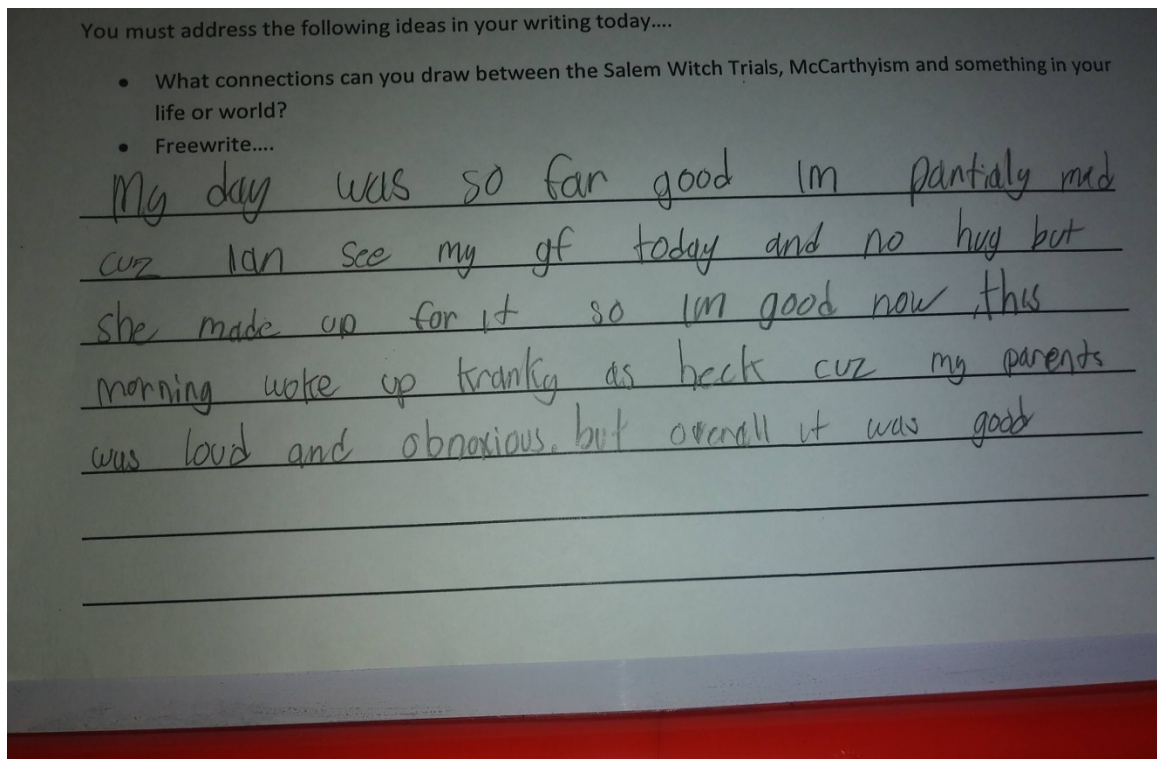 You must address the following ideas in your writing today....
• What connections can you draw between the Salem Witch Trials, McCarthyism and something in your
life or world?
• Freewrite....
My day was so far good Im partialy mad
cuz Ian see my gf today and no hug but
she made up for it so Im good now, this
morning woke up kranky as heck cuz my parents
was loud and obnoxious. but overall it was good